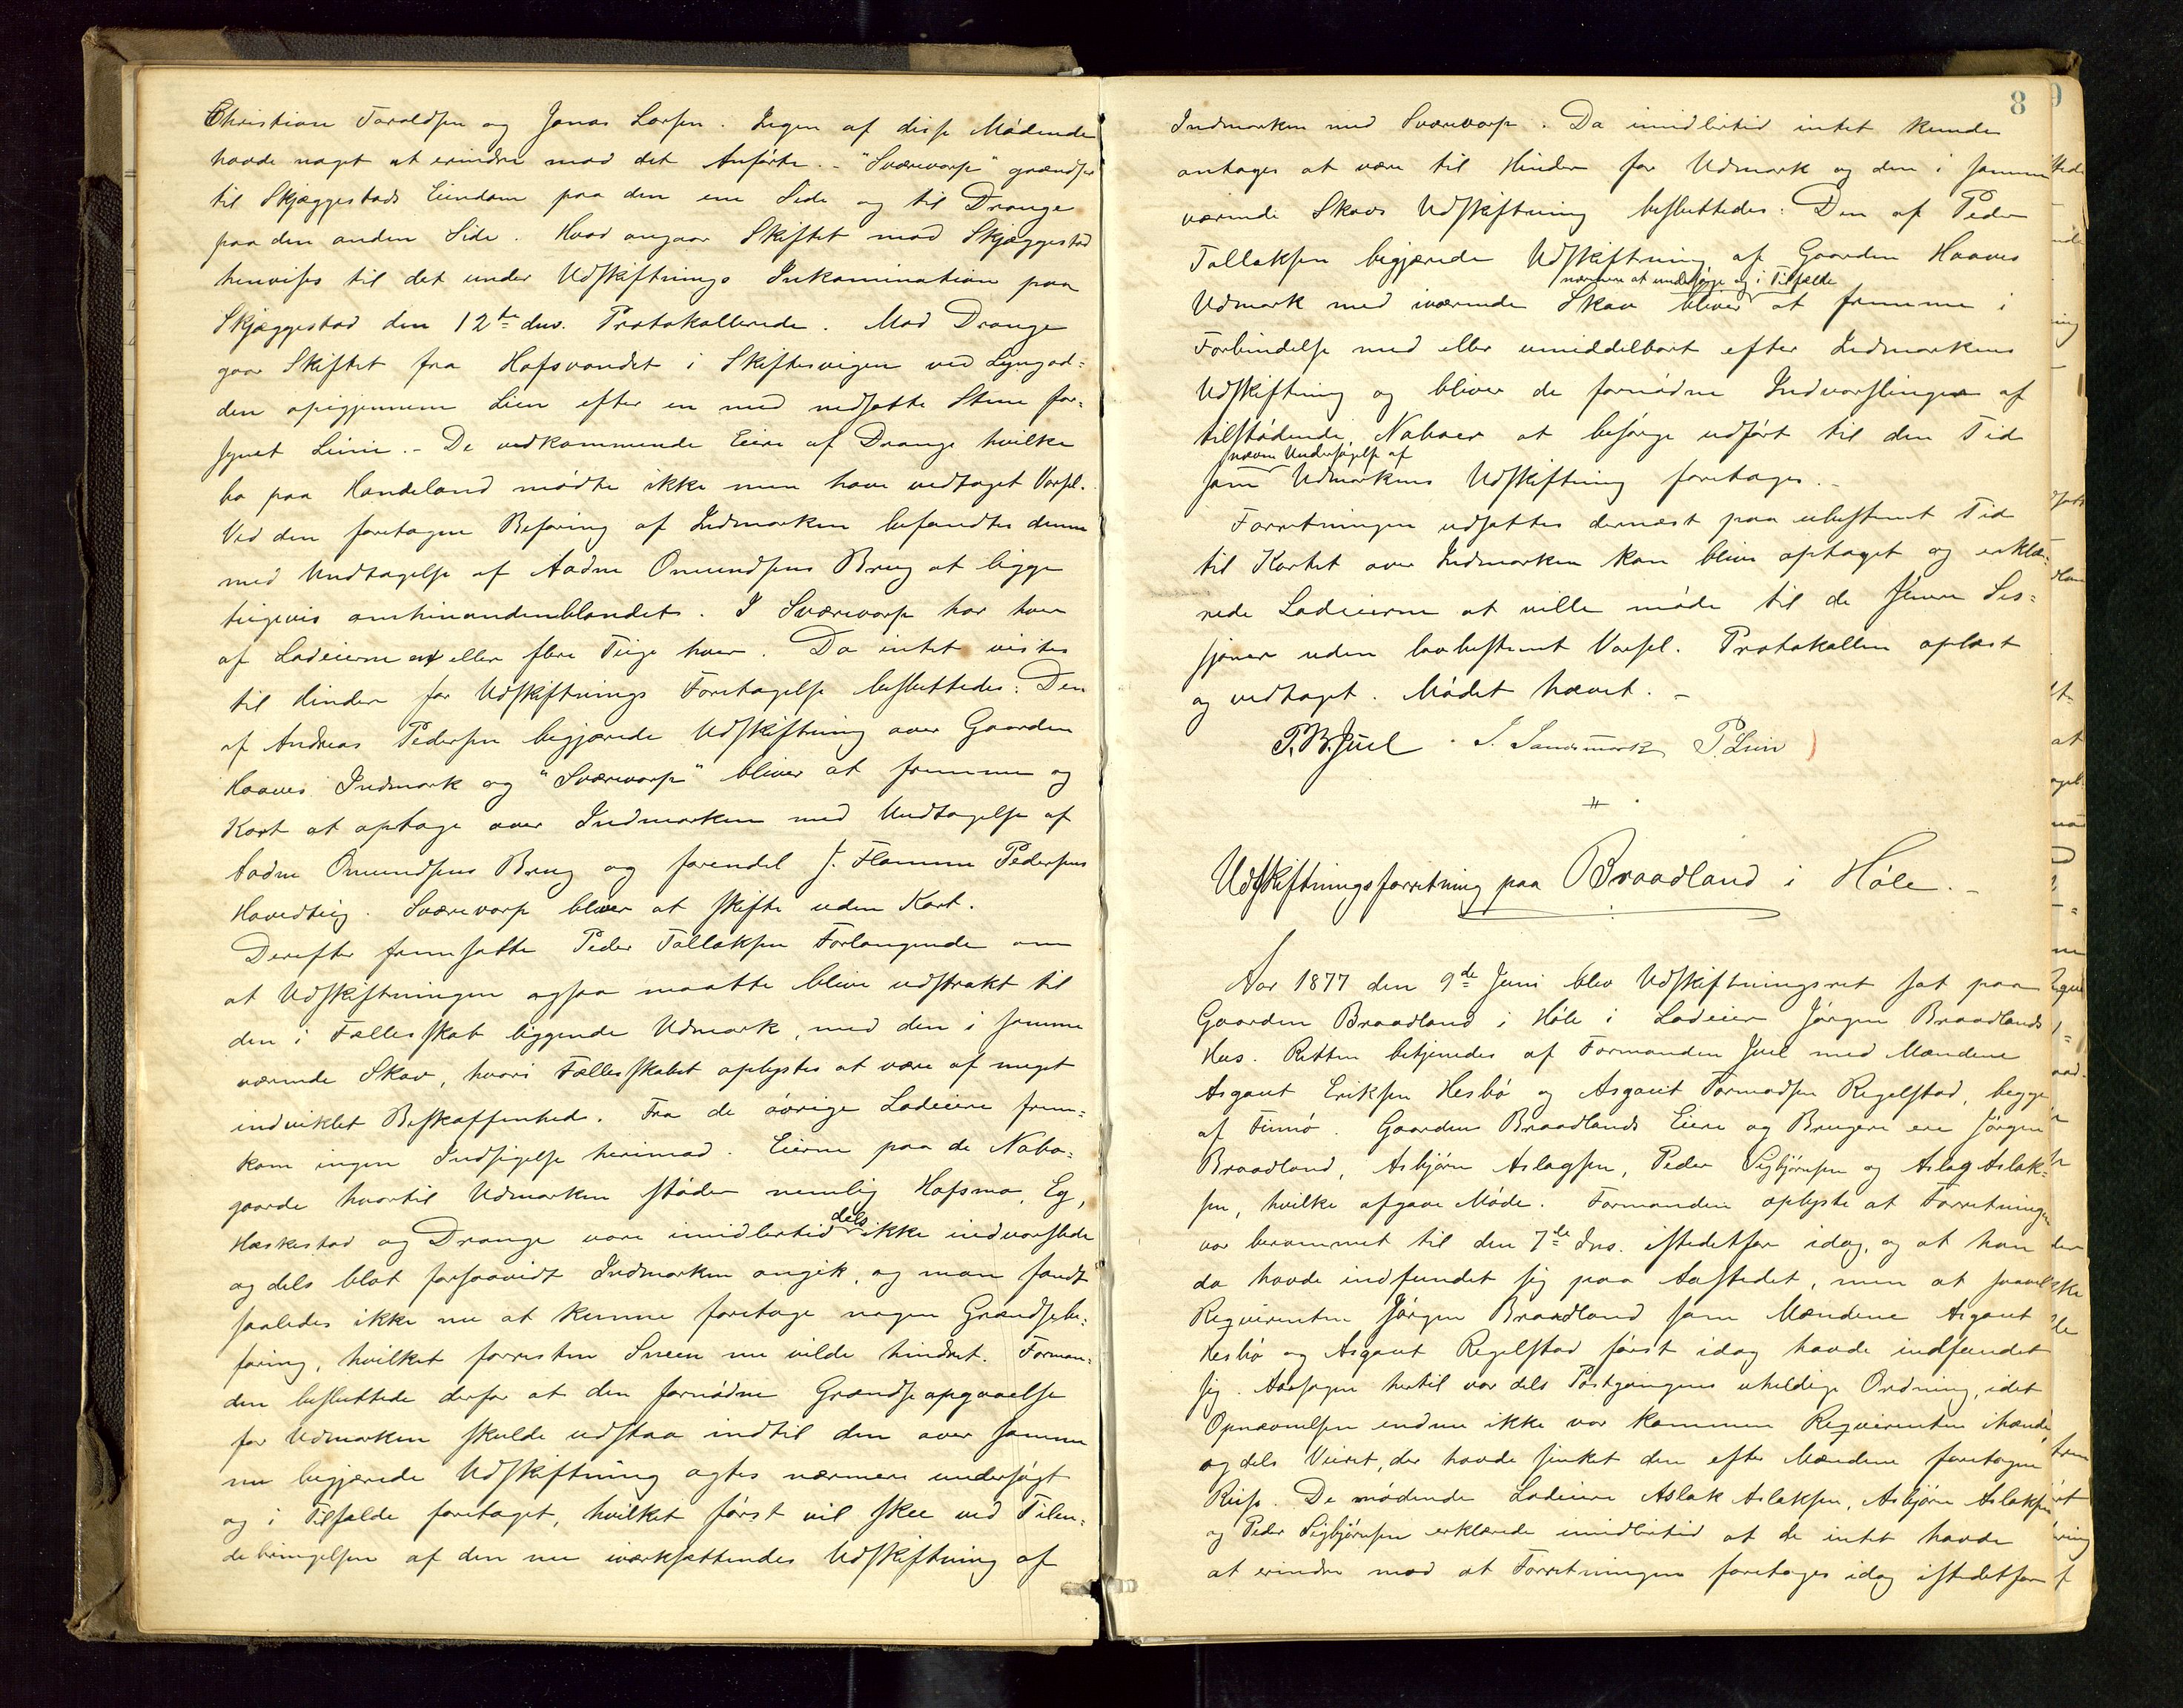 Christian Taraldsen og Jonas Larsen. Ingen af disse Mødende
havde noget at erindre mod det Anførte. - "Sværevarp" grændser
til Skjæggestads Eiendom paa den ene Side og til Drange
paa den anden Side. Hvad angaar Skiftet mod Skjæggestad
henvises til det under Udskiftnings Inkamination paa
Skjæggestad den 12te dns. Protokollerede. Mod Drange
gaar Skiftet fra Hofsvandet i Skiftesvigen ved Lyngod=
den opigjennem Lien efter en med nedsatte Stene for=
synet Linie. - De vedkommende Eiere af Drange hvilke
bo paa Handeland mødte ikke men have vedtaget Varsel.
Ved den foretagne Befaring af Indmarken befandtes denne
med Undtagelse af Aadne Omundsens Brug at ligge
teigevis omhinandenblandet. I Sværevarp har hver
af Lodeierne et eller flere Teige hver. Da intet vistes
til Hinder for Udskiftnings Foretagelse besluttedes: Den
af Andreas Pedersen begjærede Udskiftning over Gaarden
Haaves Indmark og "Sværevarp" bliver at fremme og
Kart at optage over Indmarken med Undtagelse af
Aadne Omundsens Brug og forendel J. Flamme Pedersens
Hovedteig. Sværevarp bliver at skifte uden Kart.
Derefter fremsatte Peder Tollaksen Forlangende om
at Udskiftningen ogsaa maatte blive udstrakt til
den i Fællesskab liggende Udmark, med den i samme
værende Skov, hvori Fællesskabet oplystes at være af meget
indviklet Beskaffenhed. Fra de øvrige Lodeiere frem=
kom ingen Indsigelse herimod. Eierne paa de Nabo=
gaarde hvortil Udmarken støder nemlig Hofsmo, Eg,
Haskestad og Drange vare imidlertid dels ikke indvarslede
og dels blot forsaavidt Indmarken angik, og man fandt
saaledes ikke nu at kunne foretage nogen Grændsebe=
faring, hvilket forresten Sneen nu vilde hindret. Forman=
den besluttede derfor at den fornødne Grændseopgaaelse
for Udmarken skulde udstaa indtil den over samme
nu begjærede Udskiftning agtes nærmere undersøgt
og i Tilfælde foretaget, hvilket først vil skee ved Tilen=
debringelsen af den nu iværksættendes Udskiftning af
8
Indmarken med Sværevarp. Da imidlertid intet kunde
antages at være til Hinder for Udmark og den i samme
værende Skovs Udskiftning besluttedes: Den af Peder
Tollaksen begjærede Udskiftning af Gaarden Haaves
nærmere at undersøge og i Tilfælde
Udmark med iværende Skov bliver at fremme i
Forbindelse med eller umiddelbart efter Indmarkens
Udskiftning og bliver de fornødne Indvarslinger af
tilstødende Naboer at besørge udført til den Tid
nærm Undersøgelse af
som Udmarkens Udskiftning foretages. -
Forretningen udsattes dernæst paa ubestemt Tid
til Kartet over Indmarken kan blive optaget og erklæ=
rede Lodeierne at ville møde til de senere Ses=
sjoner uden lovbestemt Varsel. Protokollen oplæst
og vedtaget. Mødet hævet. -
P. B. Juel. I. Sandsmark P. Lein
Udskiftningsforretning paa Braadland i Høle. -
Aar 1877 den 9de Juni blev Udskiftningsret sat paa
Gaarden Braadland i Høle i Lodeier Jørgen Braadlands
Hus. Retten betjenedes af Formanden Juel med Mændene
Asgaut Eriksen Hesbø og Asgaut Tormodsen Regelstad, begge
af Finnø. Gaarden Braadlands Eiere og Brugere ere Jørgen
Braadland, Asbjørn Aslagsen, Peder Sigbjørnsen og Aslag Aslak=
sen, hvilke afgave Møde. Formanden oplyste at Forretningen
var berammet til den 7de dns. istedetfor idag, og at han
da havde indfundet sig paa Aastedet, men at saavel
Reqvirenten Jørgen Braadland som Mændene Asgaut
Hesbø og Asgaut Regelstad først idag havde indfundet
sig. Aarsagen hertil var dels Postgangens uheldige Ordning, idet
Opnævnelsen endnu ikke var kommen Reqvirenten ihænde,
og dels Veiret, der havde sinket den efter Mændene foretagne
Reise. De mødende Lodeiere Aslak Aslaksen, Asbjørn Aslaksen
og Peder Sigbjørnsen erklærede imidlertid at de intet havde
at erindre mod at Forretningen foretages idag istedetfor